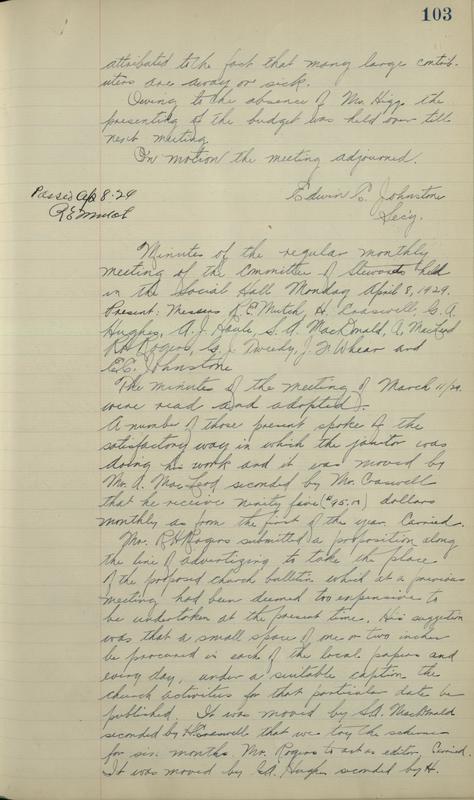 103
attributed to the fact that many large contrib-
utors are away or sick.
Owing to the absence of Mr. Higgs the
presenting of the budget was held over till
next meeting.
On motion the meeting adjourned.
Edwin C. Johnstone
Secy.
Passed Ap 8-29
R E Mutch
Minutes of the regular monthly
meeting of the Committee of Stewards held
in the Social Hall Monday April 8, 1929.
Present: Messrs R.E. Mutch, H. Craswell, G.A.
Hughes, A.J. Houle, S.A. MacDonald, A. MacLeod
R.H. Rogers, G.J. Tweedy, J.F. Whear and
E.C. Johnstone
The minutes of the meeting of March 11/29.
were read and adopted.
A number of those present spoke of the
satisfactory way in which the janitor was
doing his work and it was moved by
Mr. A. MacLeod seconded by Mr. Craswell
that he receive ninety five ($95.00) dollars
monthly as from the first of the year. Carried.
Mr. R.H. Rogers submitted a proposition along
the line of advertizing to take the place
of the proposed church bulletin which at a previous
meeting had been deemed too expensive to
be undertaken at the present time. His suggestion
was that a small space of one or two inches
be procured in each of the local papers and
every day, under a suitable caption the
church activities for that particular date be
published. It was moved by S.A. MacDonald
seconded by H. Craswell that we try the scheme
for six months. Mr. Rogers to act as editor. Carried.
It was moved by G.A. Hughes seconded by H.